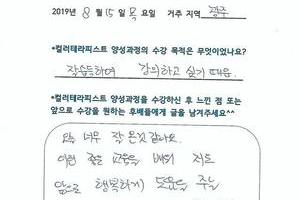 2019년 8 월 15 일 목 요일 거주 지역 광주
•컬러테라피스트 양성과정의 수강 목적은 무엇이었나요?
강의하고 싶기 때문.
•컬러테라피스트 양성과정을 수강하신 후 느낀 점 또는
앞으로 수강을 원하는 후배들에게 글을 남겨주세요^^
너무 잘 온것 같아요.
이런 좋은 교육을 배워 저도
앞으로 행복하게 도움을 주늘